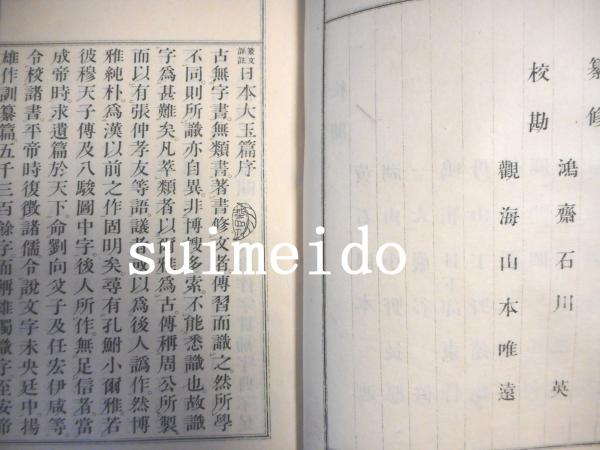 纂修
鴻齋石川 英
校勘
觀海山本唯遠
篆文詳註日本大玉篇序
古無字書無類書著書修文者傳習而識之然所學
不同則所識亦自異非博搜多索不能悉識也故識
字爲甚難矣凡萃類者以爾雅爲古傳稱周公所製
而以有張仲孝友等語議者或以爲後人譌作然博
雅純朴爲漢以前之作固明矣尋有孔鮒小爾雅若
彼穆天子傳及八駿圖中字後人所作無足信者當
成帝時求遺篇於天下命劉向父子及任宏伊咸等
令校諸書平帝時復徵諸儒令說文字未央廷中揚
雄作訓纂篇五千三百餘字而稱雄獨識字至安帝
suimeido